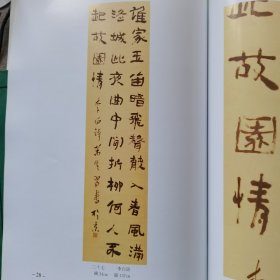 誰家玉笛暗飛聲散入春風滿
洛城此夜曲中聞折柳何人不
起故園情 李白詩
二十七 李白詩
—28—
起故園情